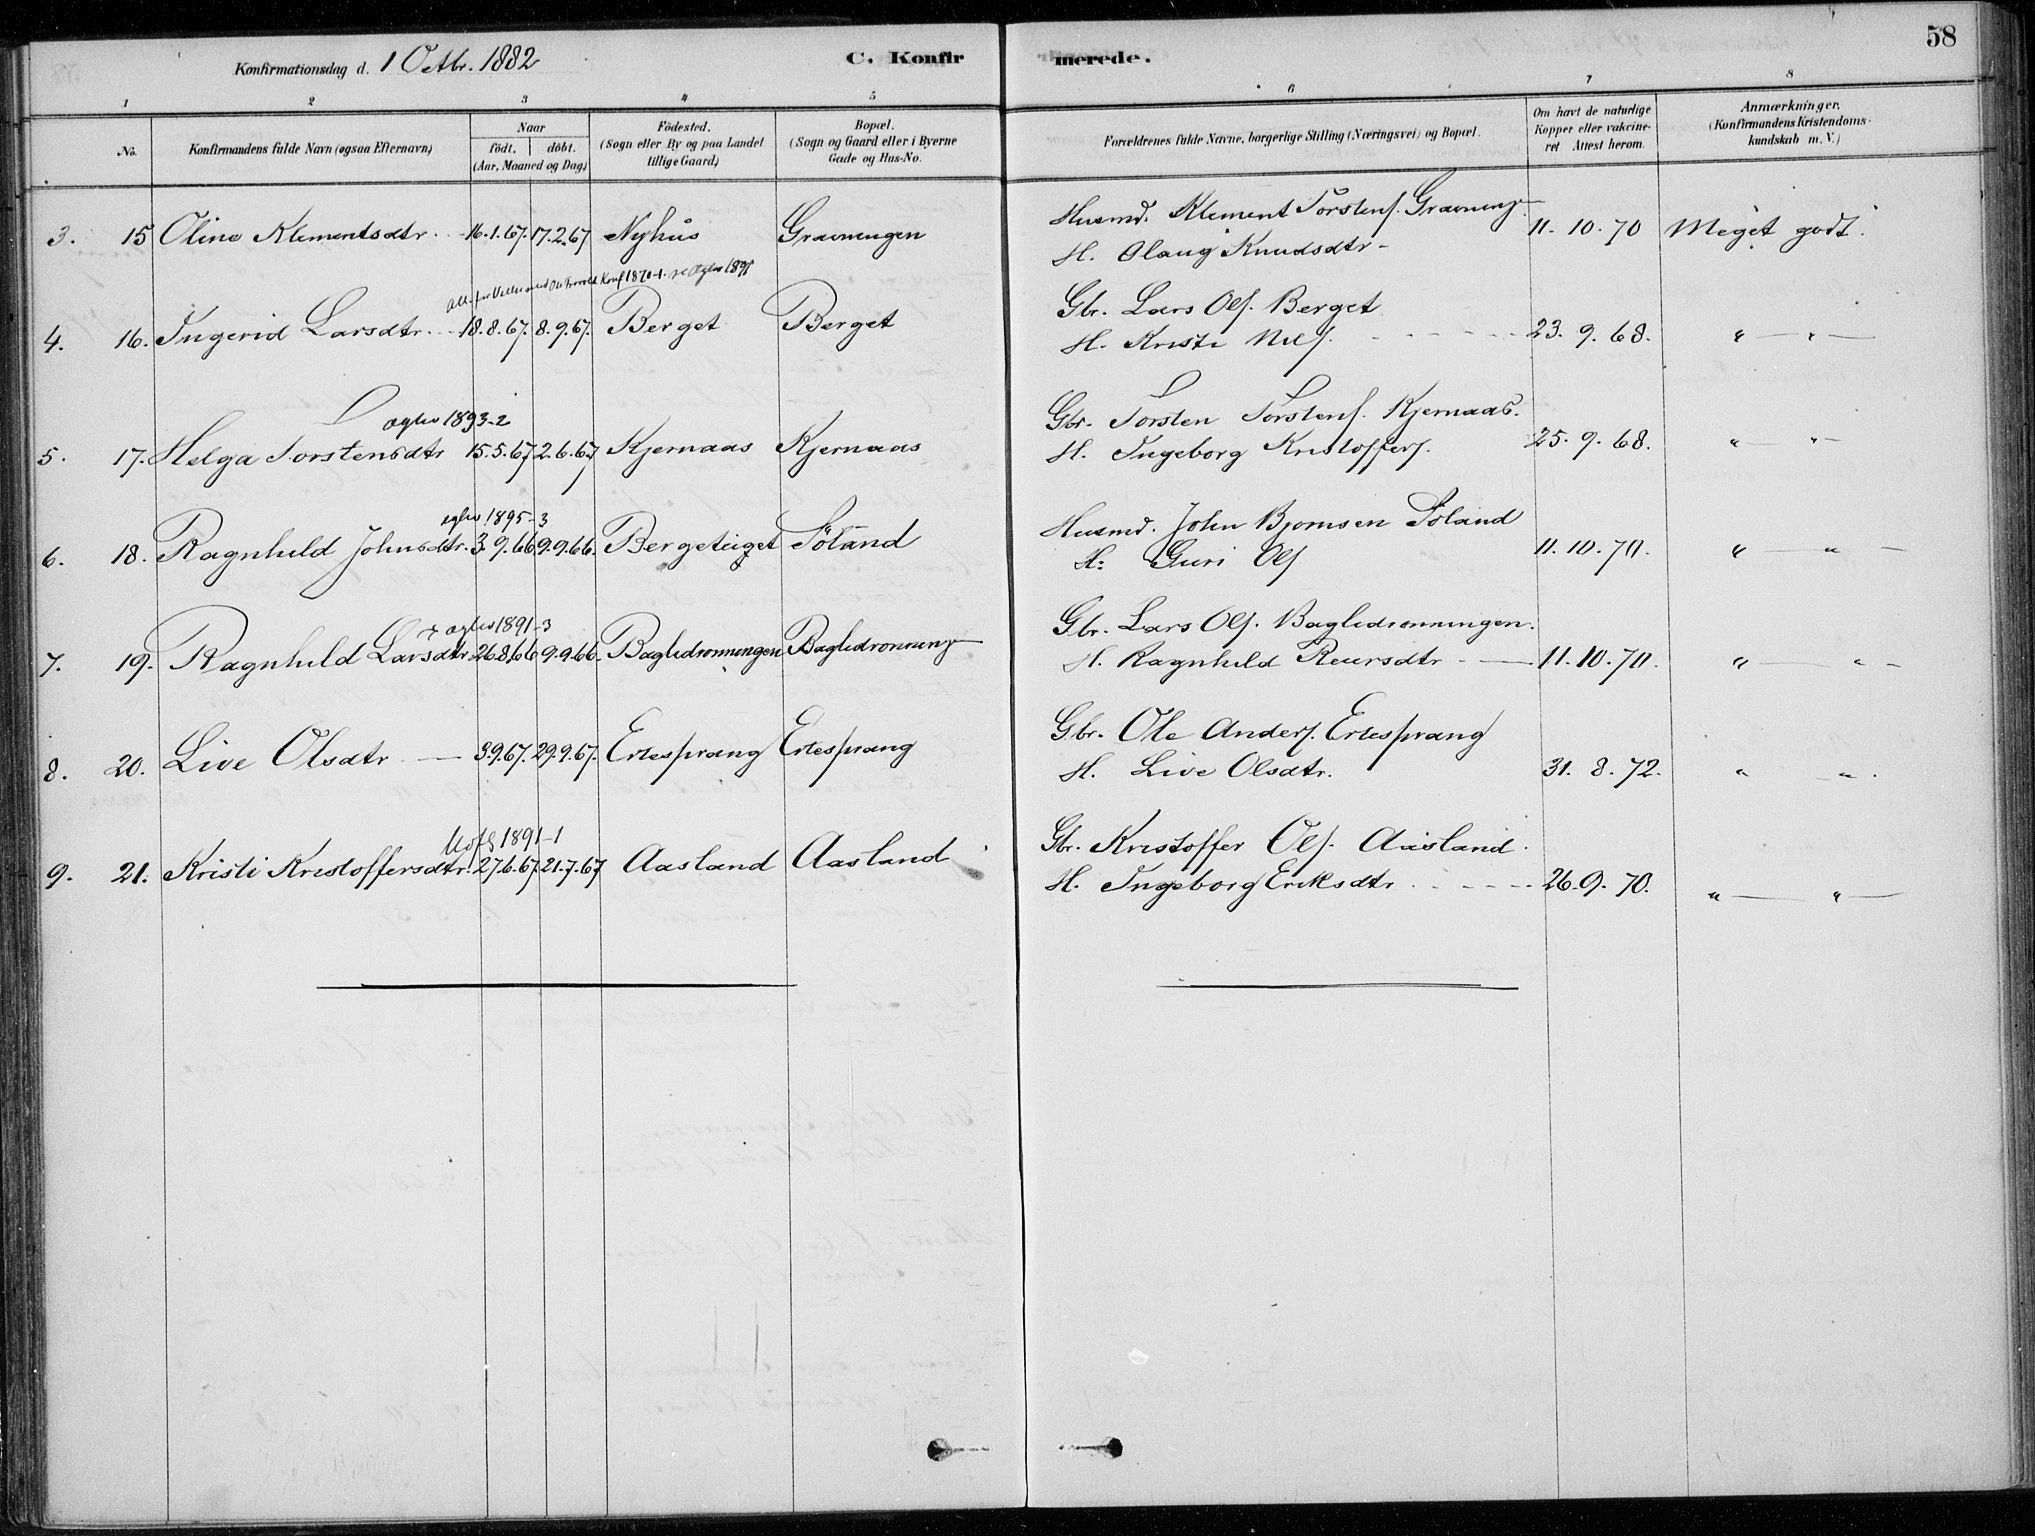 58
Konfirmationsdag d. 1 Octbr. 1882
C. Konfirmerede.
1 2 3 4 5 6 7 8
No.
Konfirmandens fulde Navn (ogsaa Efternavn)
Naar
födt. döbt.
(Aar, Maaned og Dag.)
Födested.
(Sogn eller By og paa Landet
tillige Gaard.)
Bopæl.
(Sogn og Gaard eller i Byerne
Gade og Hus-No.
Forældrenes fulde Navne, borgerlige Stilling (Næringsvei) og Bopæl.
Om havt de naturlige
Kopper eller vakcine-
ret Attest herom.
Anmærkninger.
(Konfirmandens Kristendoms-
kundskab m. V.)
3. 15 Oline Klementsdtr. 16.1.67. 17.2.67 Nyhus Gravningen
Husmd. Klement Torstens. Gravning
H. Olaug Knudsdtr - 11. 10. 70 Meget godt.
1870-1. 1891
4. 16. Ingerid Larsdtr. 18.8.67. 8.9.67. Berget Berget
Gbr. Lars Ols. Berget
H. Kristi Nils. 23. 9. 68. " — " —
aglio 1893-2
5. 17. Helga Torstensdtr 15.5.67 2.6.67 Kjernaas Kjernaas
Gbr. Torsten Torstens. Kjernaas.
H. Ingeborg Kristoffers. 25. 9. 68. " — " —
aglio 1895-3
6. 18. Ragnhild Johnsdtr. 3.9.66 9.9.66. Bergeteiget Söland
Husmd. John Bjornsen Söland
H: Guri Ols 11. 10. 70. " — " —
aglio 1891-3
7. 19. Ragnhild Larsdtr. 26.8.66 9.9.66. Baglidronningen Baglidronning
Gbr. Lars Ols. Baglidronningen.
H. Ragnhild Reiersdtr - — 11. 10. 70. " — " —
8. 20. Live Olsdtr — 3.9.67. 29.9.67. Ertesprang Ertesprang
Gbr. Ole Anders. Ertesprang
H. Live Olsdtr. 31. 8. 72. " — " .
1891-1
9. 21. Kristi Kristoffersdtr. 27.6.67. 21.7.67 Aasland Aasland
Gbr. Kristoffer Ols. Aasland.
H. Ingeborg Eriksdtr 26. 9. 70. " — " —